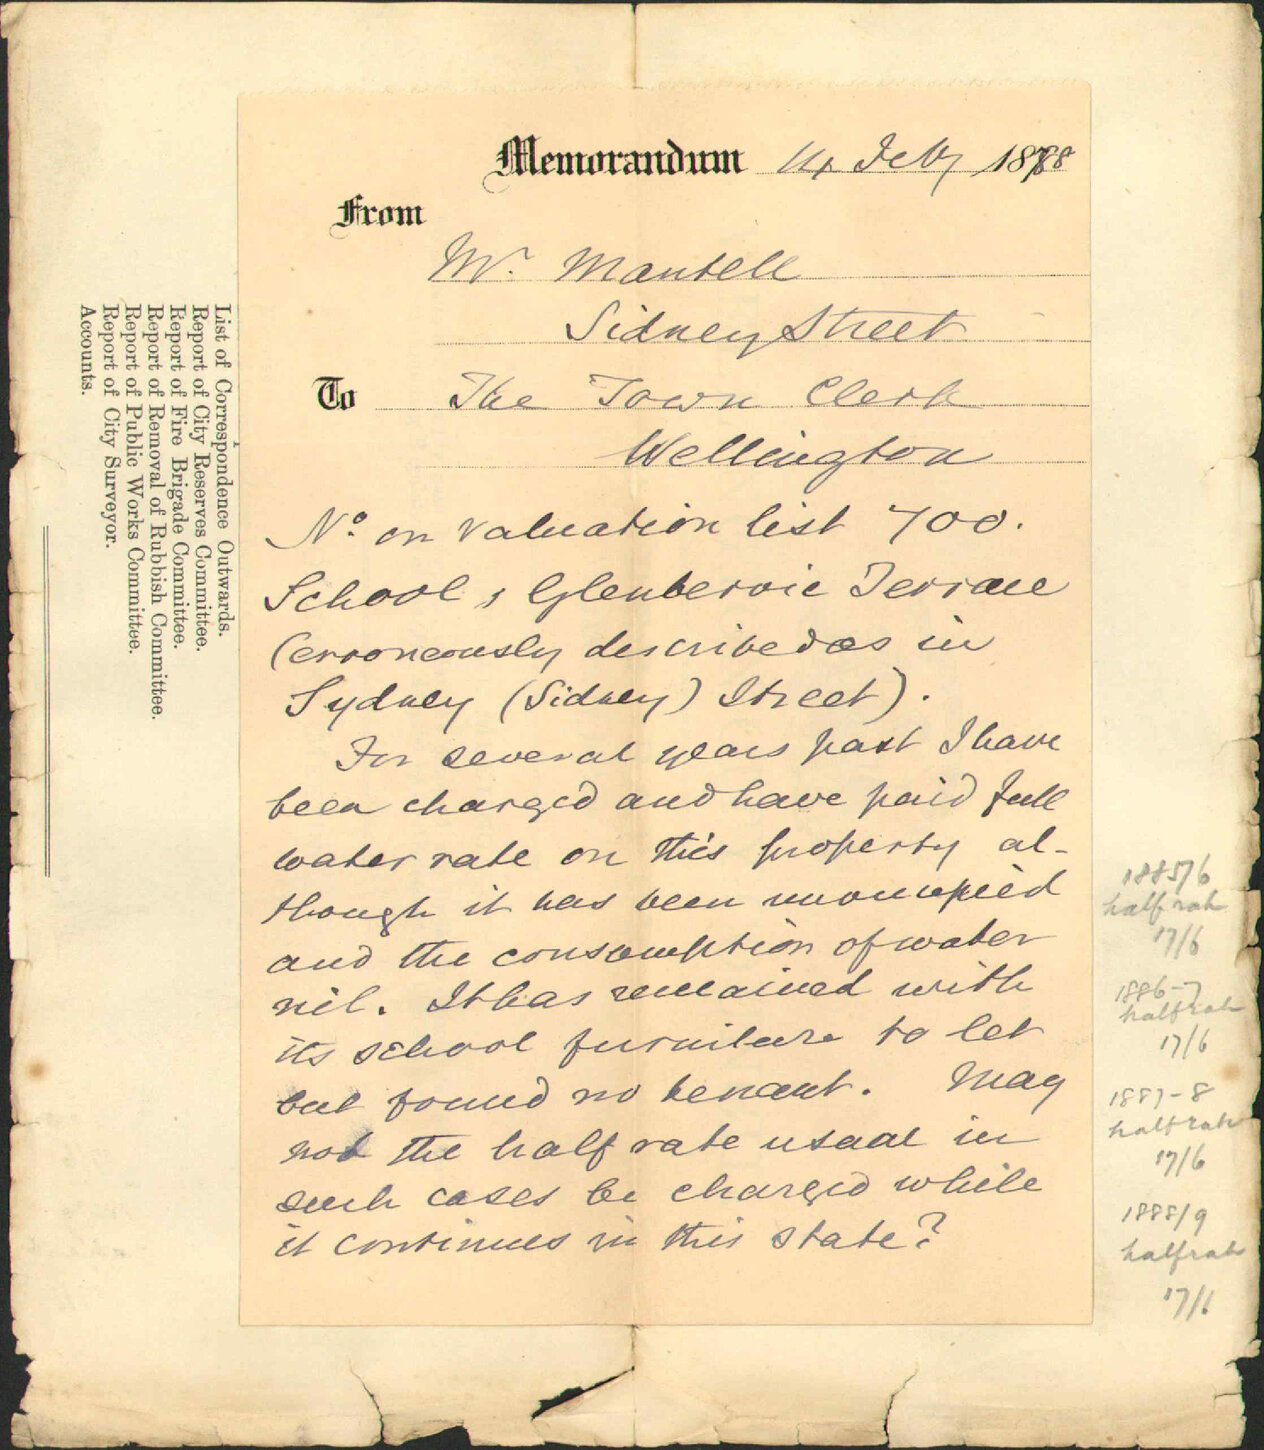 Memorandum 14 Feby 1888
From
Mr. Mantell
Sidney Street
To The Town Clerk
Wellington
No. on Valuation list 700.
School, Glenbervie Terrace
(erroneously described as in
Sydney (Sidney) Street).
For several years past I have
been charged and have paid full
water rate on this property al-
though it has been unoccupied
and the consumption of water
nil. It has remained with
its school furniture to let
but found no tenant. May
not the half rate usual in
such cases be charged while
it continues in this state?
List of Correspondence Outwards.
Report of City Reserves Committee.
Report of Fire Brigade Committee.
Report of Removal of Rubbish Committee.
Report of Public Works Committee.
Report of City Surveyor.
Accounts.
1885/6
half rate
17/6
1886-7
half rate
17/6
1887-8
half rate
17/6
1888/9
half rate
17/6